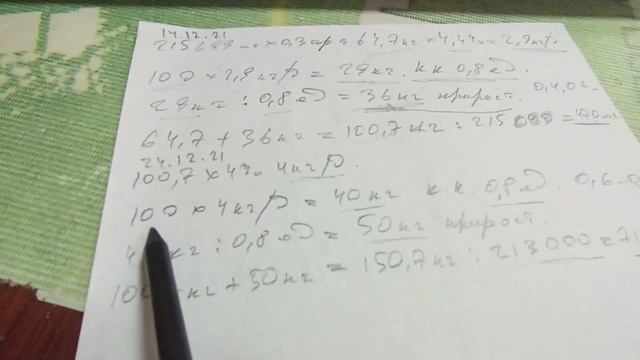 14.12.21
215688 × 0,3 гр = 64,7 кг × 4,4% = 2,9 кг р
100 × 2,9 кг р = 29 кг. к.к 0,8 ед.
29 кг : 0,8 ед = 36 кг прирост. 0,4
64,7 + 36 кг = 100,7 кг : 215 = 470 мг
24.12.21
100,7 × 4% 4 кг р.
100 × 4 кг р = 40 кг к.к. 0,8 ед. 0,6
кг : 0,8 ед = 50 кг прирост.
кг + 50 кг = 150,7 кг : 213000 = 71